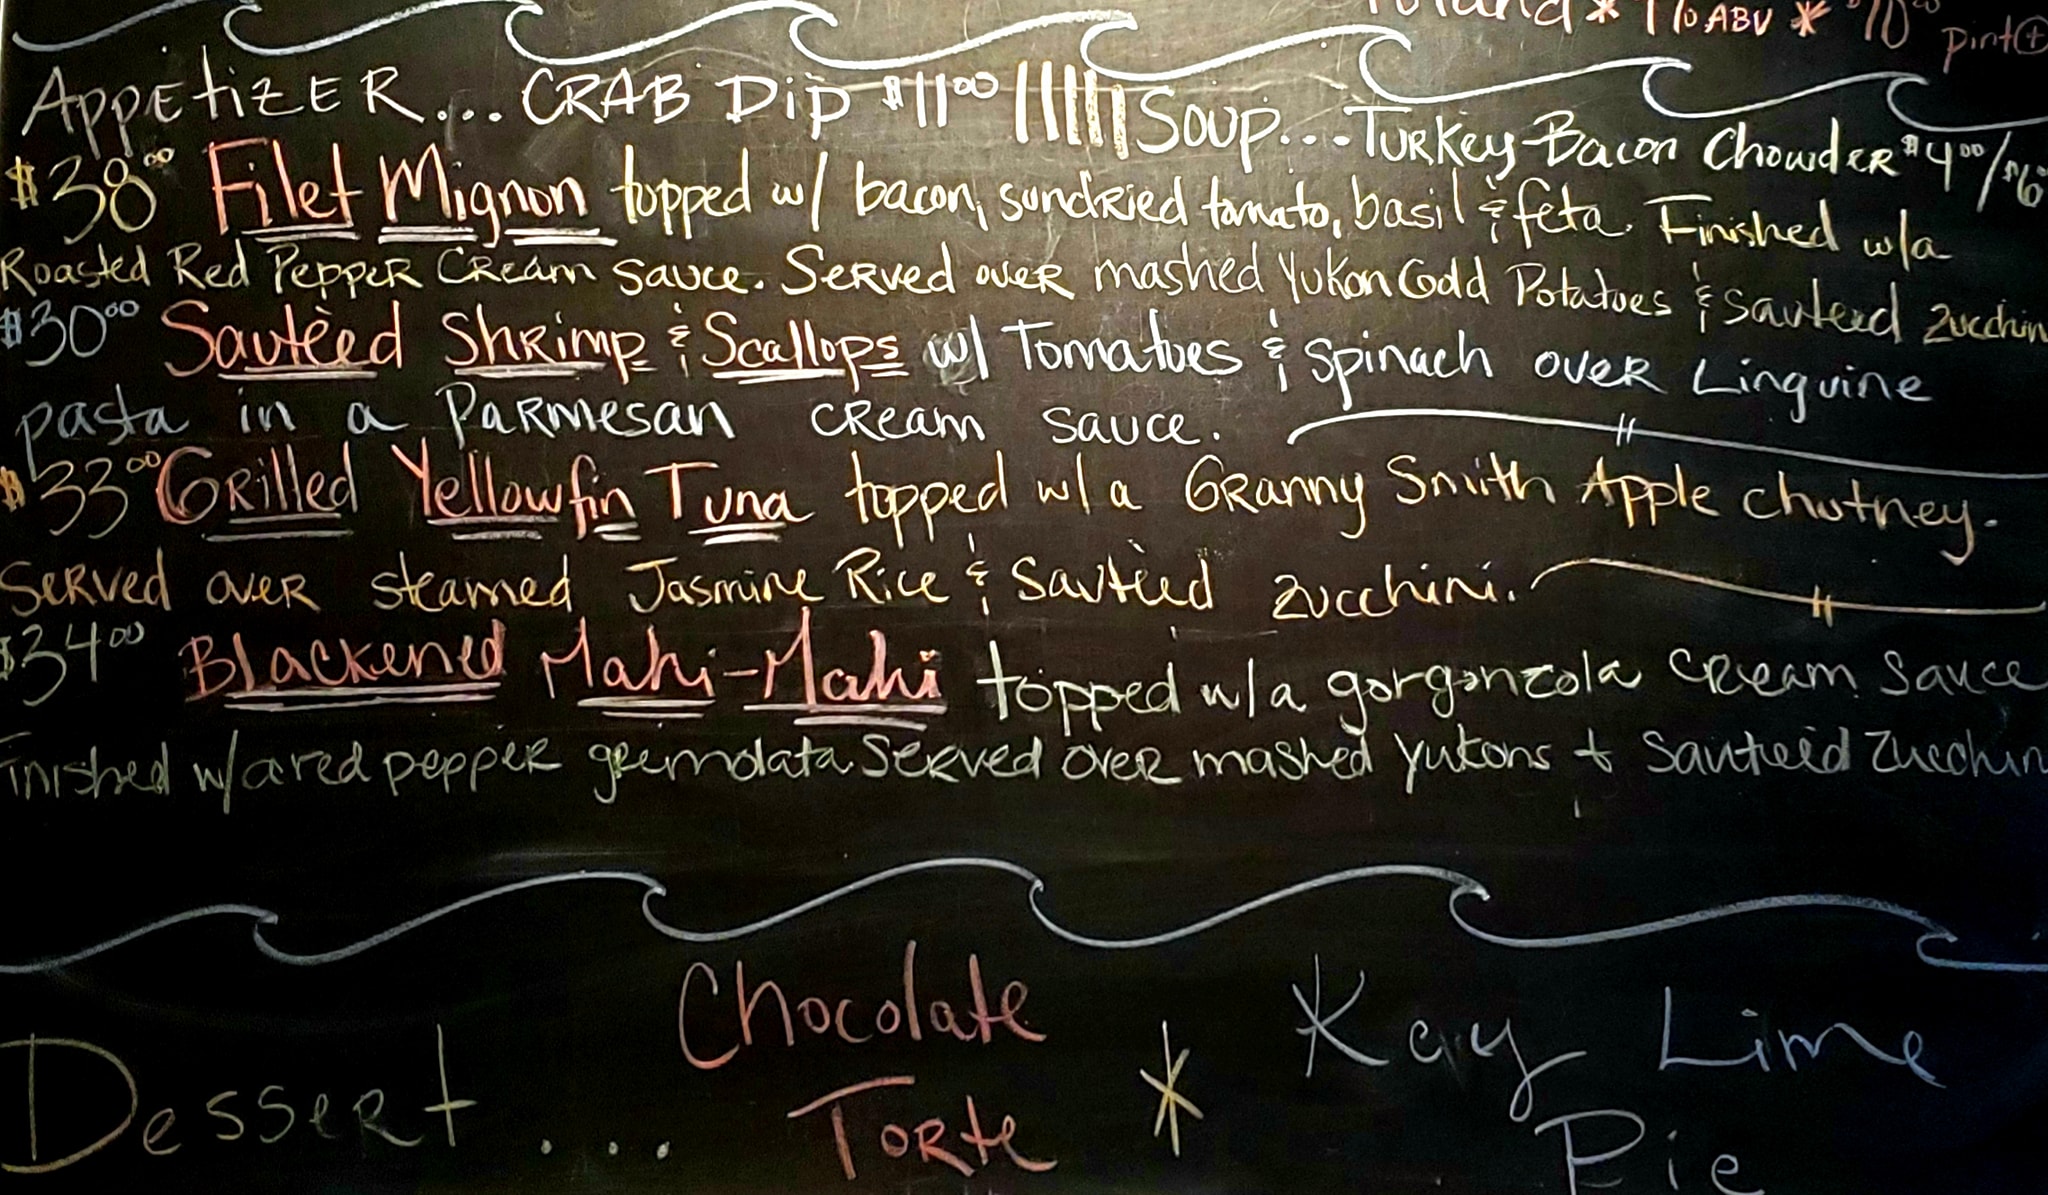 * 7% ABV * $10⁰⁰ pint
Appetizer... CRAB Dip $11⁰⁰ Soup... Turkey-Bacon Chowder $4⁰⁰/$6
$38⁰⁰ Filet Mignon topped w/ bacon, sundried tomato, basil & feta. Finished w/a
Roasted Red Pepper Cream sauce. Served over mashed Yukon Gold Potatoes & sautéed zucchin
$30⁰⁰ Sautèed Shrimp & Scallops w/ Tomatoes & spinach over Linguine
pasta in a Parmesan cream sauce.
$33⁰⁰ Grilled Yellowfin Tuna topped w/a Granny Smith Apple chutney.
Served over steamed Jasmine Rice & Sautèed zucchini.
$34⁰⁰ Blackened Mahi-Mahi topped w/a gorgonzola cream sauce
Finished w/a red pepper gremolata. Served over mashed yukons + Sautéed Zucchin
Dessert.... Chocolate Torte * Key Lime Pie